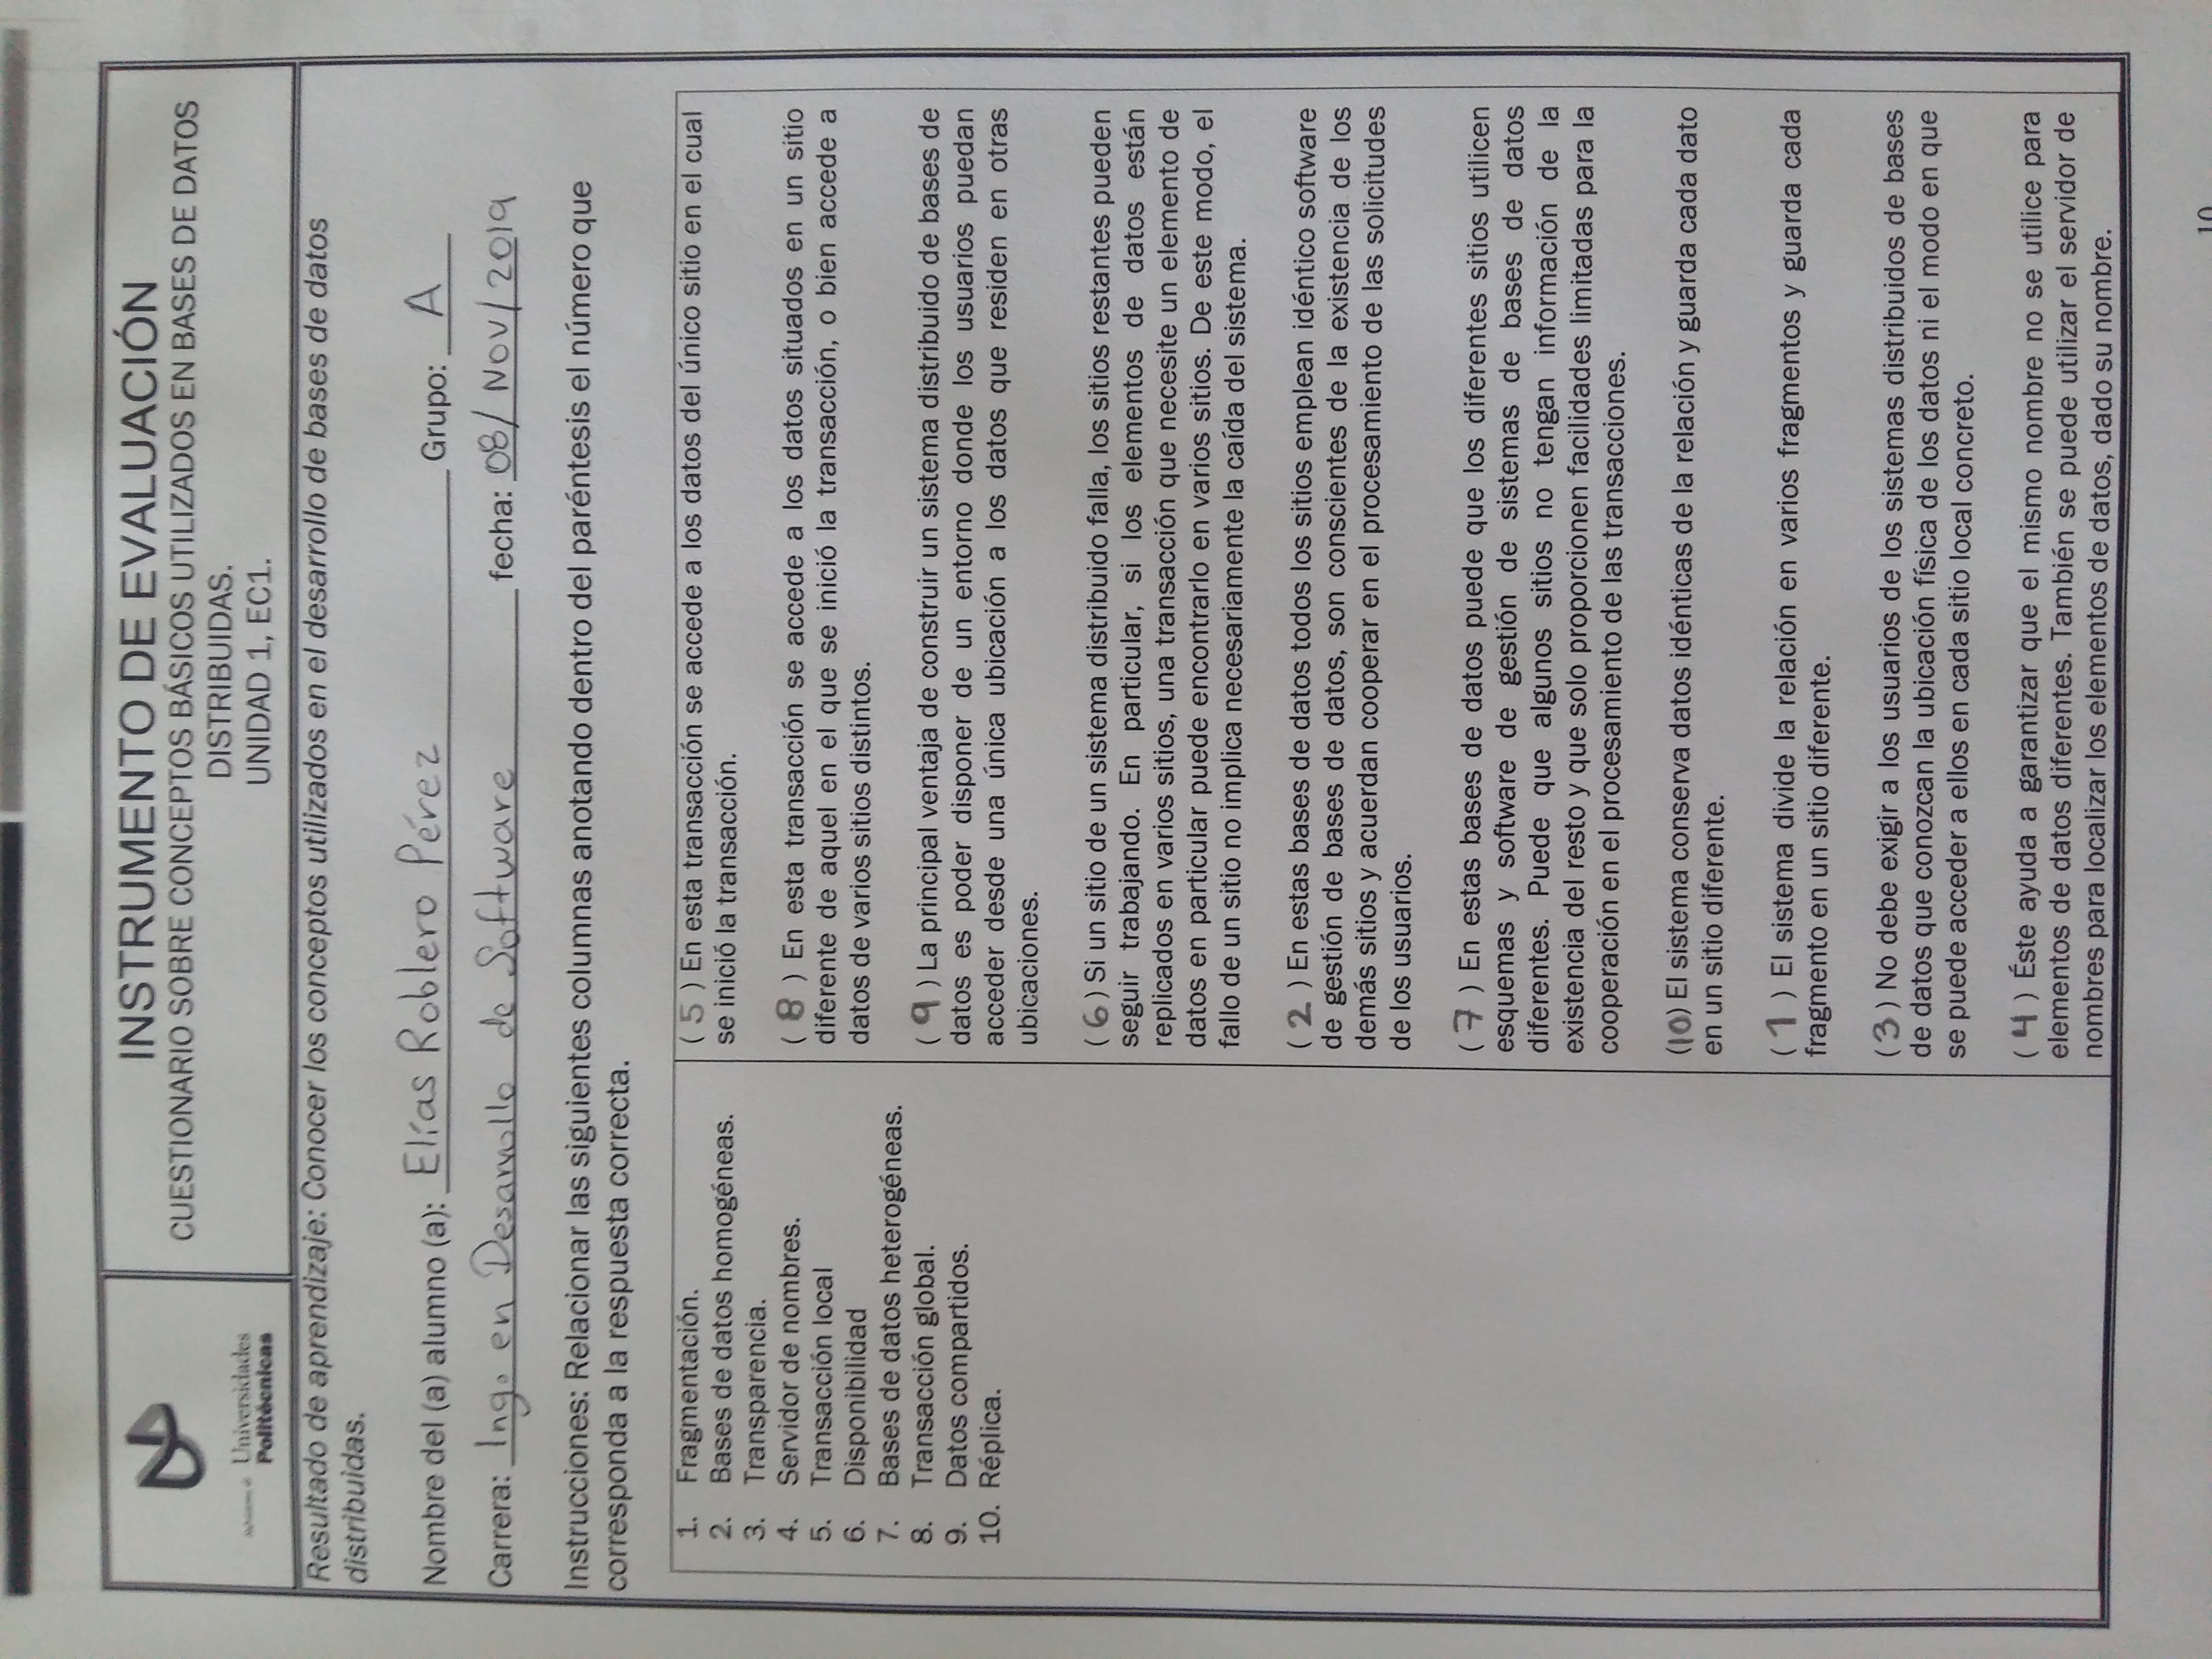 INSTRUMENTO DE EVALUACIÓN
CUESTIONARIO SOBRE CONCEPTOS BÁSICOS UTILIZADOS EN BASES DE DATOS
DISTRIBUIDAS.
UNIDAD 1, EC1.
Universidades
Politécnicas
Resultado de aprendizaje: Conocer los conceptos utilizados en el desarrollo de bases de datos
distribuidas.
Nombre del (a) alumno (a): Elías Roblero Pérez Grupo: A
Carrera: Ing. en Desarrollo de Software fecha: 08/Nov/2019
Instrucciones: Relacionar las siguientes columnas anotando dentro del paréntesis el número que
corresponda a la respuesta correcta.
1. Fragmentación.
2. Bases de datos homogéneas.
3. Transparencia.
4. Servidor de nombres.
5. Transacción local
6. Disponibilidad
7. Bases de datos heterogéneas.
8. Transacción global.
9. Datos compartidos.
10. Réplica.
( 5 ) En esta transacción se accede a los datos del único sitio en el cual
se inició la transacción.
( 8 ) En esta transacción se accede a los datos situados en un sitio
diferente de aquel en el que se inició la transacción, o bien accede a
datos de varios sitios distintos.
( 9 ) La principal ventaja de construir un sistema distribuido de bases de
datos es poder disponer de un entorno donde los usuarios puedan
acceder desde una única ubicación a los datos que residen en otras
ubicaciones.
( 6 ) Si un sitio de un sistema distribuido falla, los sitios restantes pueden
seguir trabajando. En particular, si los elementos de datos están
replicados en varios sitios, una transacción que necesite un elemento de
datos en particular puede encontrarlo en varios sitios. De este modo, el
fallo de un sitio no implica necesariamente la caída del sistema.
( 2 ) En estas bases de datos todos los sitios emplean idéntico software
de gestión de bases de datos, son conscientes de la existencia de los
demás sitios y acuerdan cooperar en el procesamiento de las solicitudes
de los usuarios.
( 7 ) En estas bases de datos puede que los diferentes sitios utilicen
esquemas y software de gestión de sistemas de bases de datos
diferentes. Puede que algunos sitios no tengan información de la
existencia del resto y que solo proporcionen facilidades limitadas para la
cooperación en el procesamiento de las transacciones.
(10) El sistema conserva datos idénticas de la relación y guarda cada dato
en un sitio diferente.
( 1 ) El sistema divide la relación en varios fragmentos y guarda cada
fragmento en un sitio diferente.
( 3 ) No debe exigir a los usuarios de los sistemas distribuidos de bases
de datos que conozcan la ubicación física de los datos ni el modo en que
se puede acceder a ellos en cada sitio local concreto.
( 4 ) Éste ayuda a garantizar que el mismo nombre no se utilice para
elementos de datos diferentes. También se puede utilizar el servidor de
nombres para localizar los elementos de datos, dado su nombre.
10